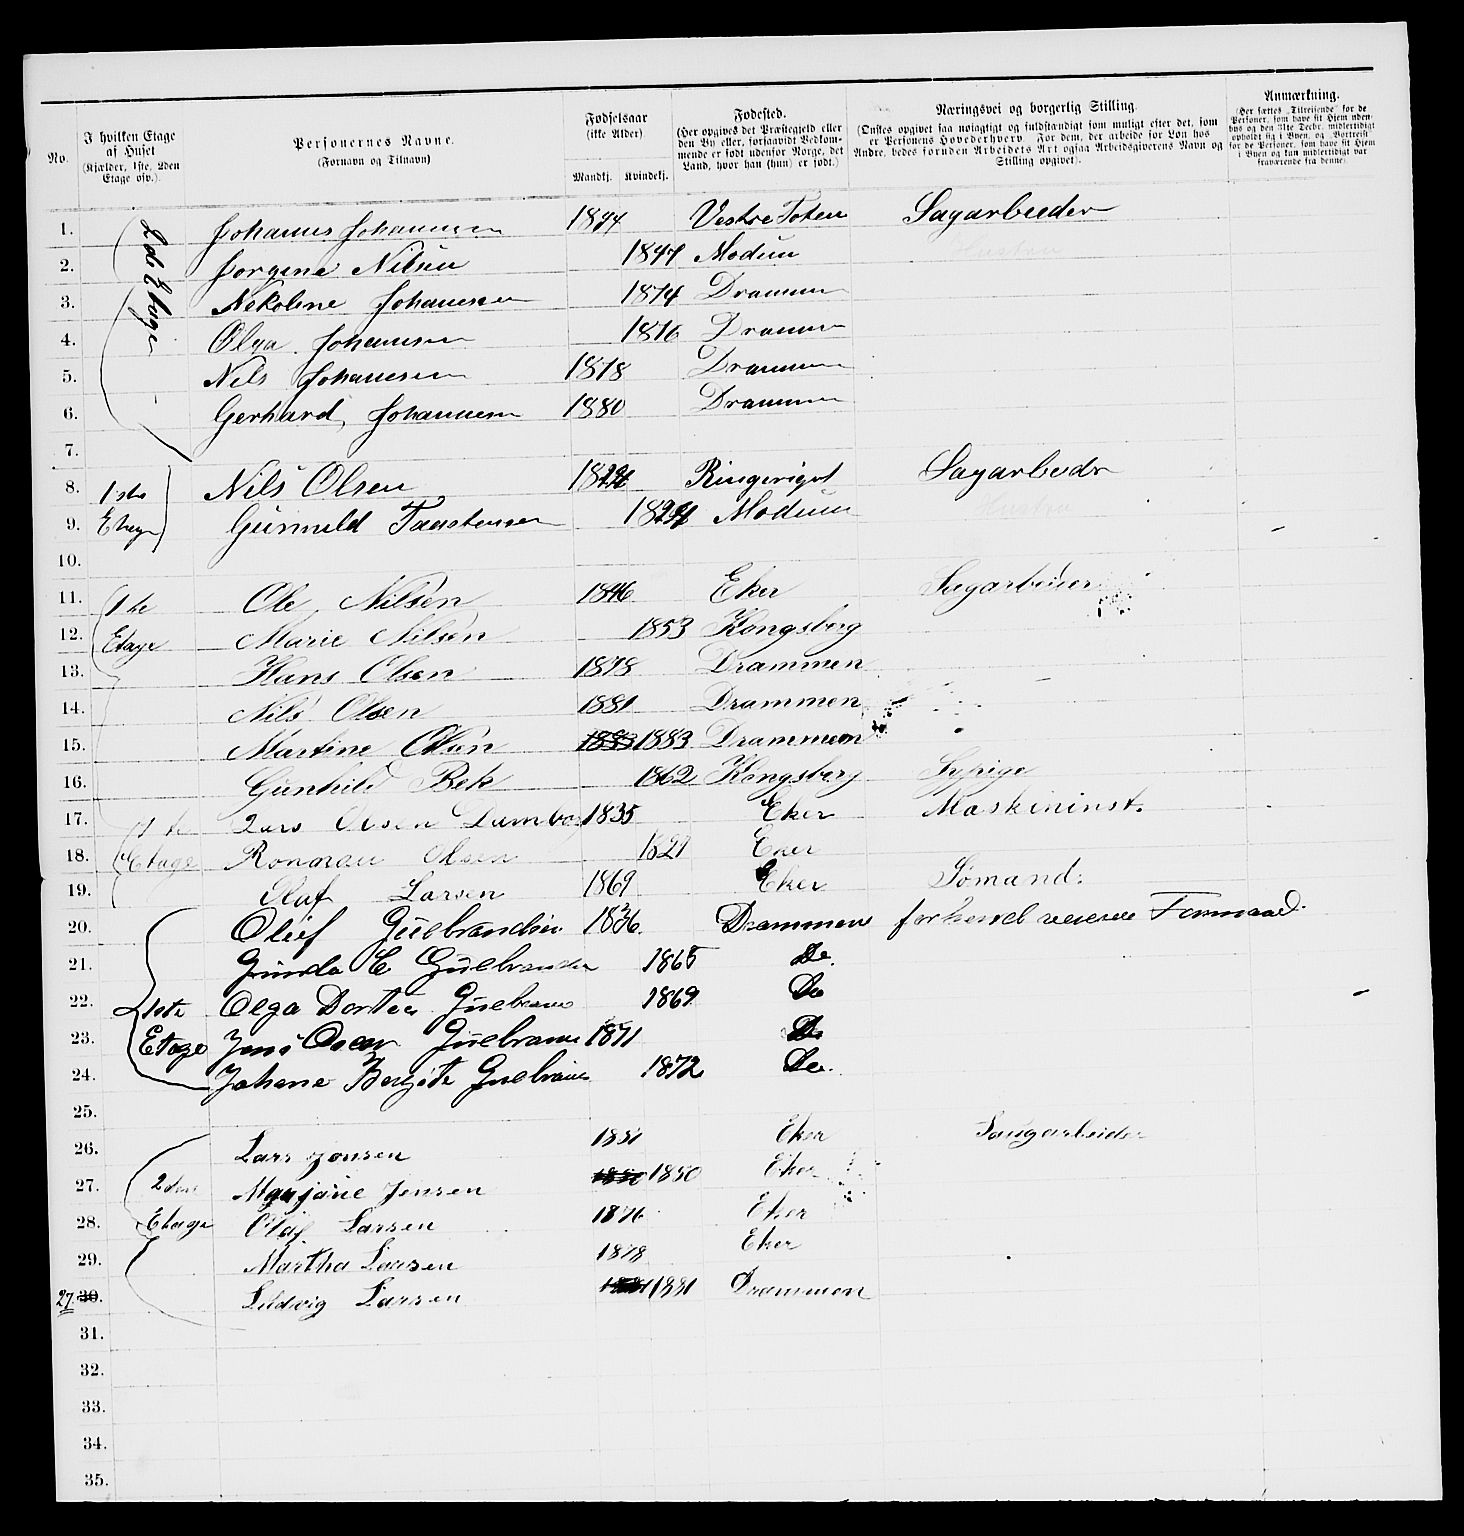 No.
I hvilken Etage af Huset (Kjælder, 1ste, 2den Etage osv.).
Personernes Navne. (Fornavn og Tilnavn)
Fødselsaar (ikke Alder) Mandkj. Kvindekj.
Fødested. (Her opgives det Præstegjeld eller den By eller, forsaavidt Vedkommende er født udenfor Norge, det Land, hvor han (hun) er født.)
Næringsvei og borgerlig Stilling. (Ønskes opgivet saa nøiagtigt og fuldstændigt som muligt efter det, som er Personens Hovederhverv. For dem, der arbeide for Løn hos Andre, bedes foruden Arbeidets Art ogsaa Arbeidsgiverens Navn og Stilling opgivet).
Anmærkning. (Her sættes „Tilreisende" for de Personer, som have sit Hjem udenbys og den 31te Decbr. midlertidigt opholdt sig i Byen, og „Bortreist" for de Personer, som have sit Hjem i Byen og kun midlertidigt var fraværende fra denne).
2de Etage
1. Johannes Johannesen 1844 Vestre Toten Sagarbeider
2. Jørgine Nilsen 1847 Modum Hustru
3. Nekoline Johannesen 1874 Drammen
4. Olga Johannesen 1876 Drammen
5. Nils Johannesen 1878 Drammen
6. Gerhard Johannesen 1880 Drammen
7.
8. 1ste Nils Olsen Ringeriget Sagarbeider
9. Etage Gunnild Modum Hustru
10.
11. 1te Ole Nilsen 1846 Eker Sagarbeider
12. Etage Marie Nilsen 1853 Kongsberg
13. Hans Olsen 1878 Drammen
14. Nils Olsen 1881 Drammen
15. Martine Olsen 1883 1883 Drammen
16. Gunhild Bek 1862 Kongsberg Sypige
17. 1te Lars Olsen 1835 Eker Maskininst.
18. Etage Olsen 1827 Eker
19. Olaf Larsen 1869 Eker Sømand.
20. Oluf Gulbrandsen Drammen Formand
21. Gulbrandsen 1865 Do.
22. 1ste Olga Dortea Gulbrands 1869 Do
23. Etage Jens Oscar Gulbrands 1871 Do
24. Johane Bergite Gulbrands 1872 Do.
25.
26. Lars Jensen 1851 Eker Saugarbeider
27. 2den Jensen 1850 1850 Eker
28. Etage Olaf Larsen 1876 Eker
29. Martha Larsen 1878 Eker
27. 30. Ludvig Larsen 1881 1881 Drammen
31.
32.
33.
34.
35.